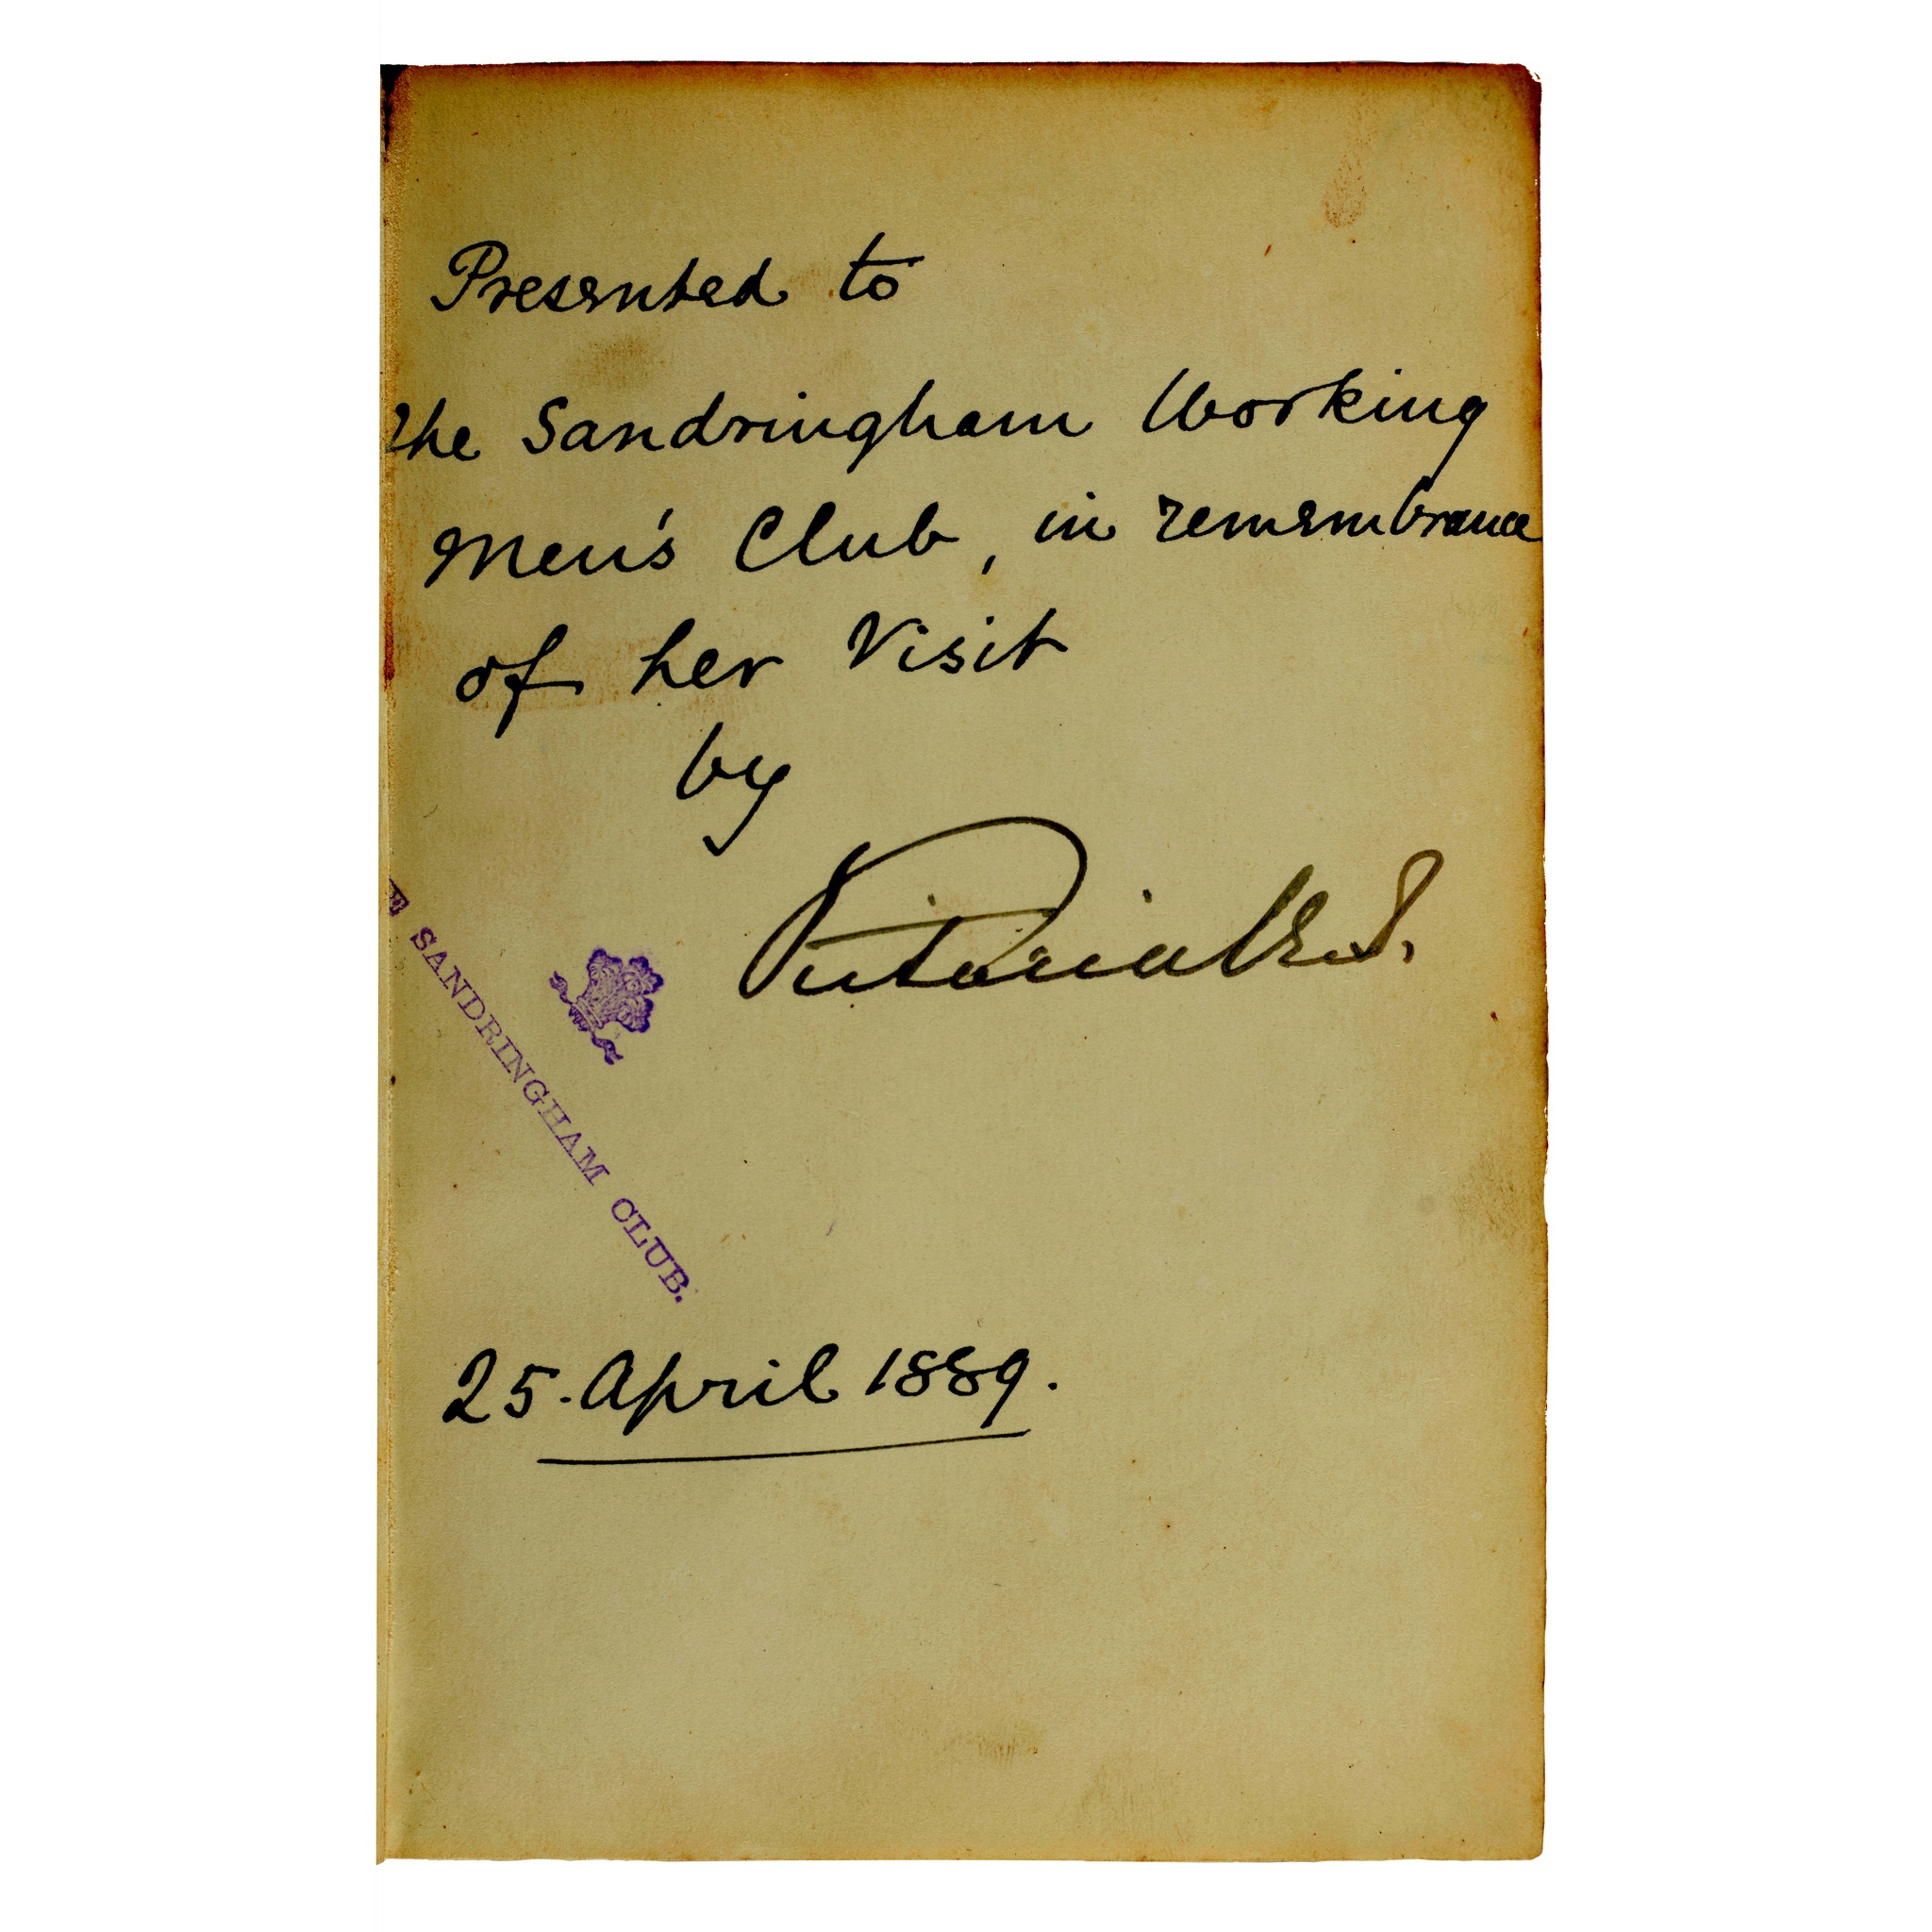 Presented to
the Sandringham Working
Men's Club, in remembrance
of her Visit
by
Victoria R. I.
E SANDRINGHAM CLUB.
25. April 1889.